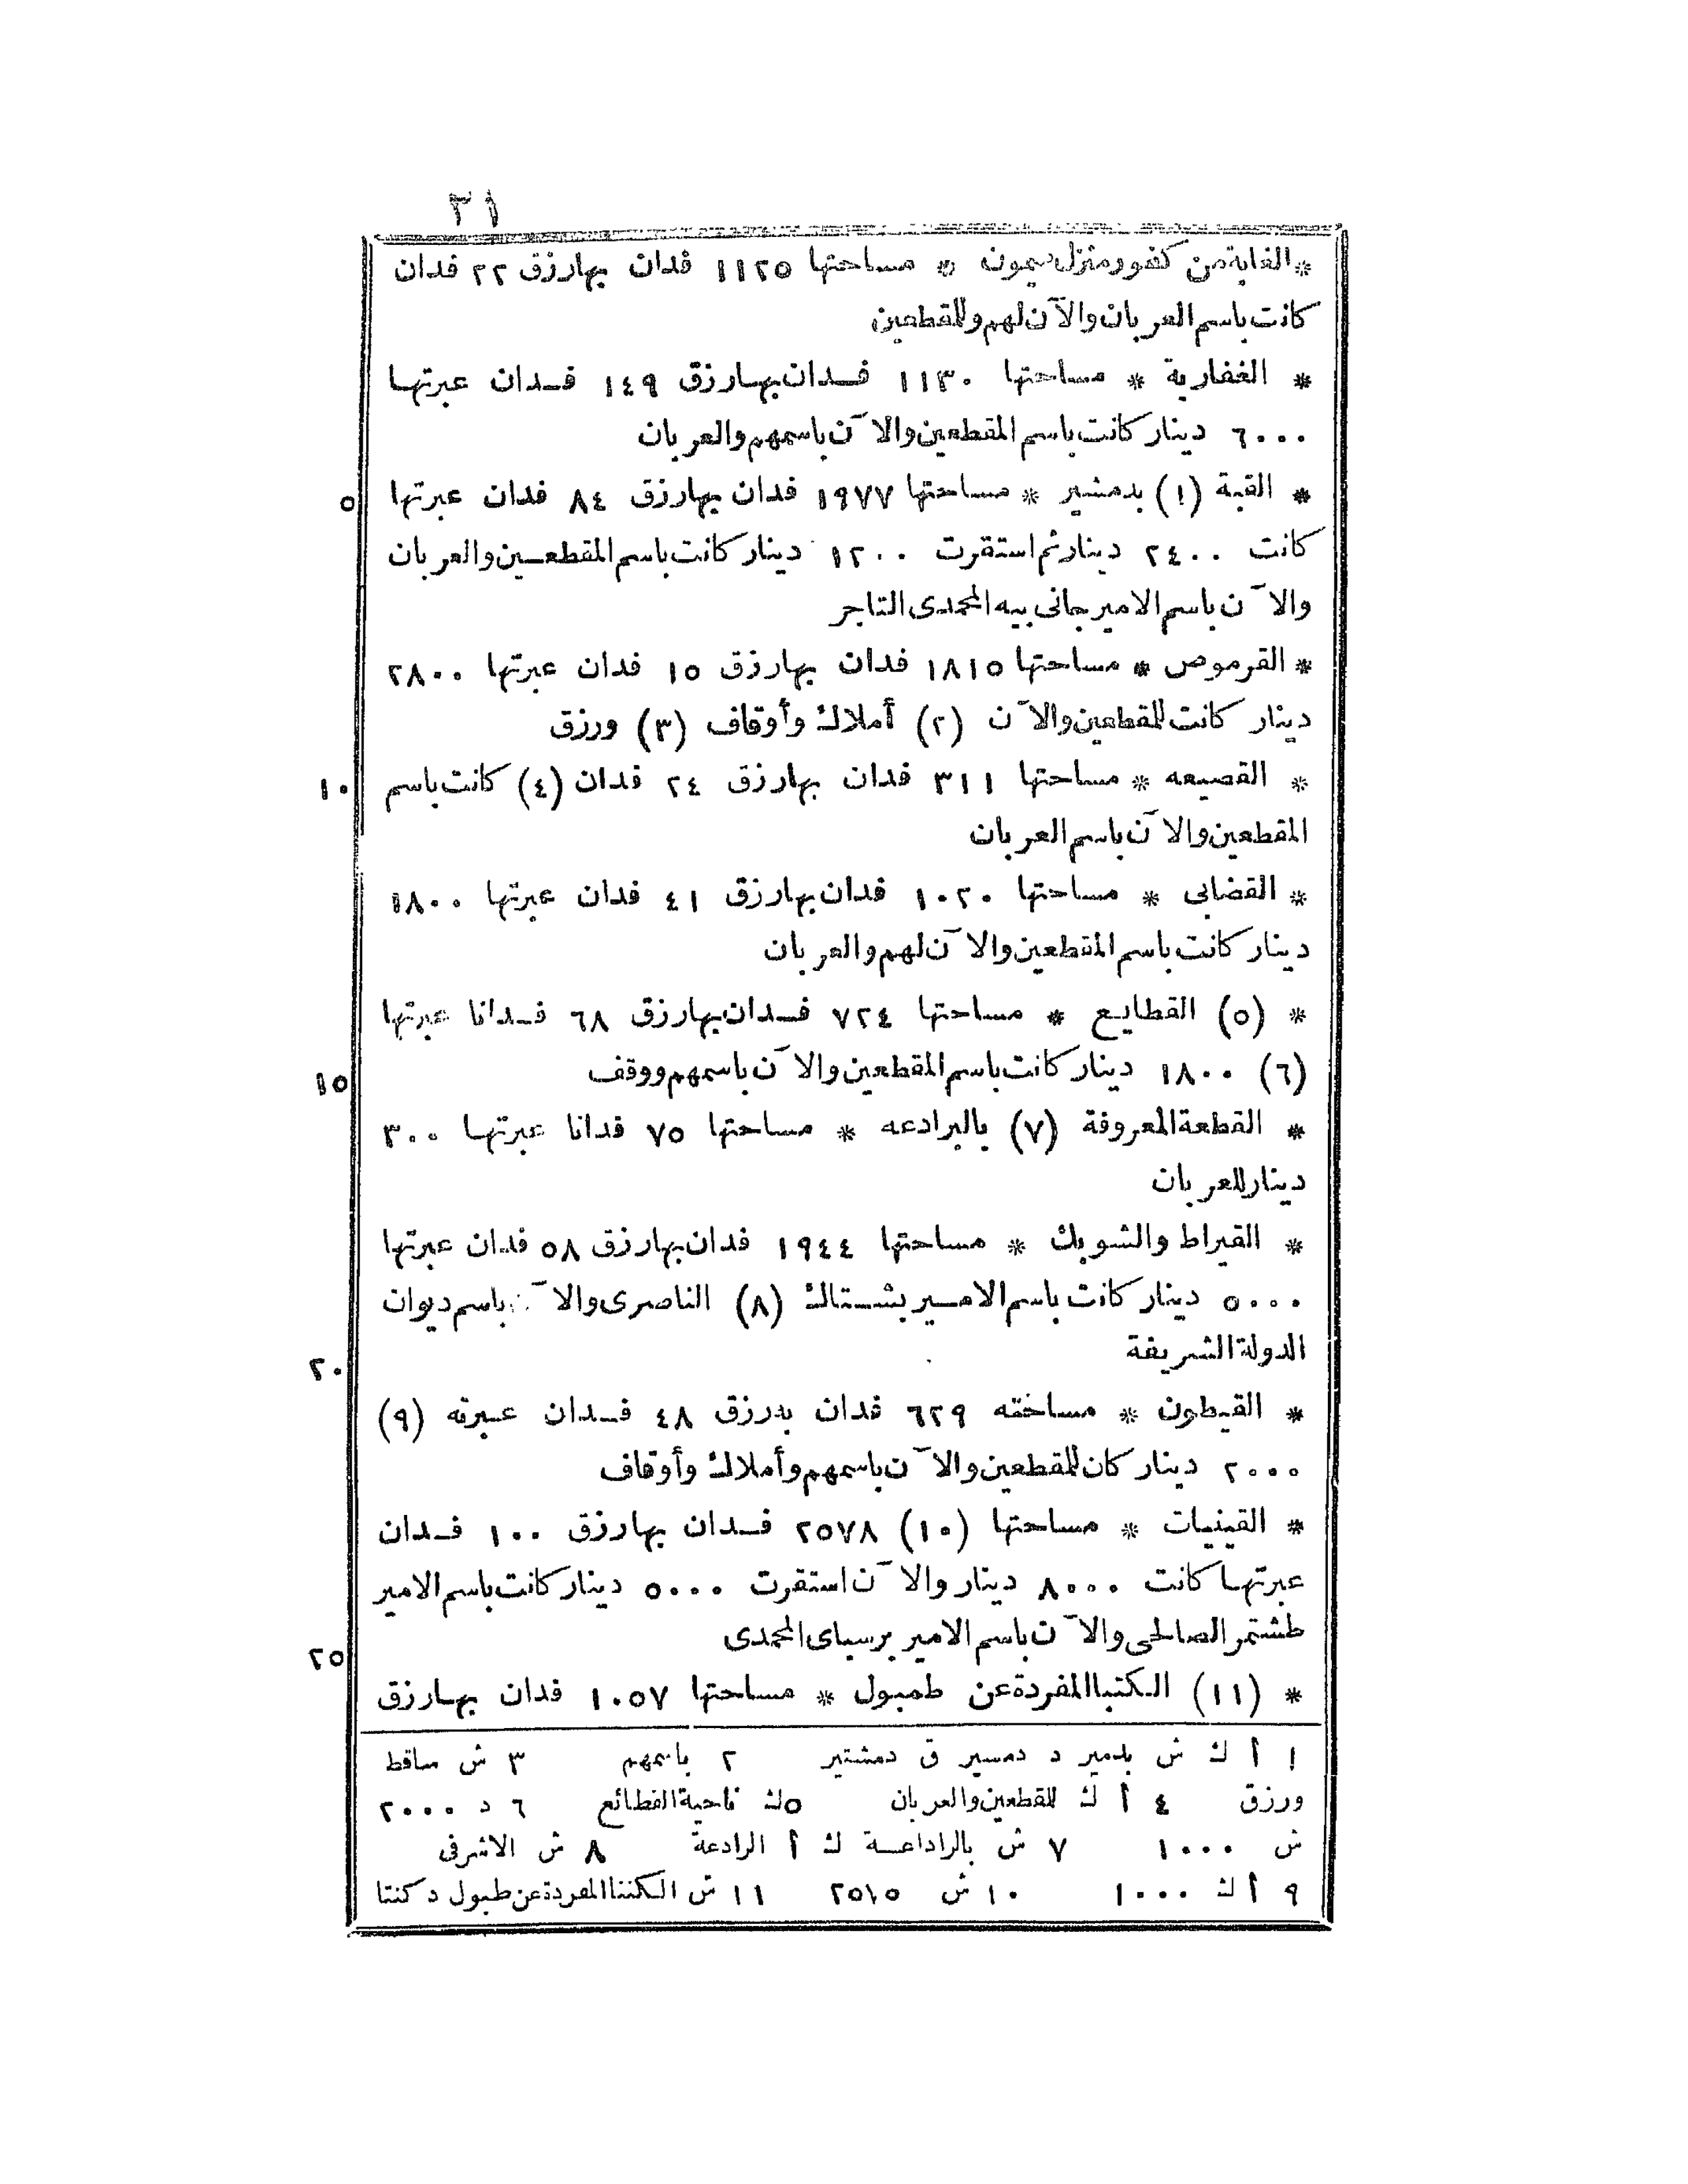 ٣١
* الغابة من كفور منزل ميمون * مساحتها ١١٢٥ فدان بها رزق ٢٢ فدان
كانت باسم العربان والآن لهم وللمقطعين
* الغفارية * مساحتها ١١٣٠ فدان بها رزق ١٤٩ فدان عبرتها
٦٠٠٠ دينار كانت باسم المقطعين والآن باسمهم والعربان
* القبة (١) بدمشير * مساحتها ١٩٧٧ فدان بها رزق ٨٤ فدان عبرتها ٥
كانت ٢٤٠٠ دينار ثم استقرت ١٢٠٠ دينار كانت باسم المقطعين والعربان
والآن باسم الامير جانى بيه المحمدى التاجر
* القرموص * مساحتها ١٨١٥ فدان بها رزق ١٥ فدان عبرتها ٢٨٠٠
دينار كانت للمقطعين والآن (٢) أملاك وأوقاف (٣) ورزق
* القصيعه * مساحتها ٣١١ فدان بها رزق ٢٤ فدان (٤) كانت باسم ١٠
المقطعين والآن باسم العربان
* القضابى * مساحتها ١٠٢٠ فدان بها رزق ٤١ فدان عبرتها ١٨٠٠
دينار كانت باسم المقطعين والآن لهم والعربان
* (٥) القطايع * مساحتها ٧٢٤ فدان بها رزق ٦٨ فدانا عبرتها
(٦) ١٨٠٠ دينار كانت باسم المقطعين والآن باسمهم ووقف ١٥
* القطعة المعروفة (٧) بالبرادعه * مساحتها ٧٥ فدانا عبرتها ٣٠٠
دينار للعربان
* القيراط والشوبك * مساحتها ١٩٤٤ فدان بها رزق ٥٨ فدان عبرتها
٥٠٠٠ دينار كانت باسم الامير بشتاك (٨) الناصرى والآن باسم ديوان
الدولة الشريفة ٢٠
* القيطون * مساحته ٦٢٩ فدان به رزق ٤٨ فدان عبرته (٩)
٢٠٠٠ دينار كان للمقطعين والآن باسمهم وأملاك وأوقاف
* القينيات * مساحتها (١٠) ٢٥٧٨ فدان بها رزق ١٠٠ فدان
عبرتها كانت ٨٠٠٠ دينار والآن استقرت ٥٠٠٠ دينار كانت باسم الامير
طشتمر الصالحى والآن باسم الامير برسباى المحمدى ٢٥
* (١١) الكتبا المفردة عن طمبول * مساحتها ١٠٥٧ فدان بها رزق
١ أ ك ش بدمير د دمسير ق دمشتير ٢ باسمهم ٣ ش ساقط
ورزق ٤ أ ك للقطعين والعربان ٥ ك ناحية القطائع ٦ د ٢٠٠٠
ش ١٠٠٠ ٧ ش بالراداعة ك أ الرادعة ٨ ش الاشرفى
٩ أ ك ١٠٠٠ ١٠ ش ٢٥١٥ ١١ ش الكننا المفردة عن طبول د كنتا